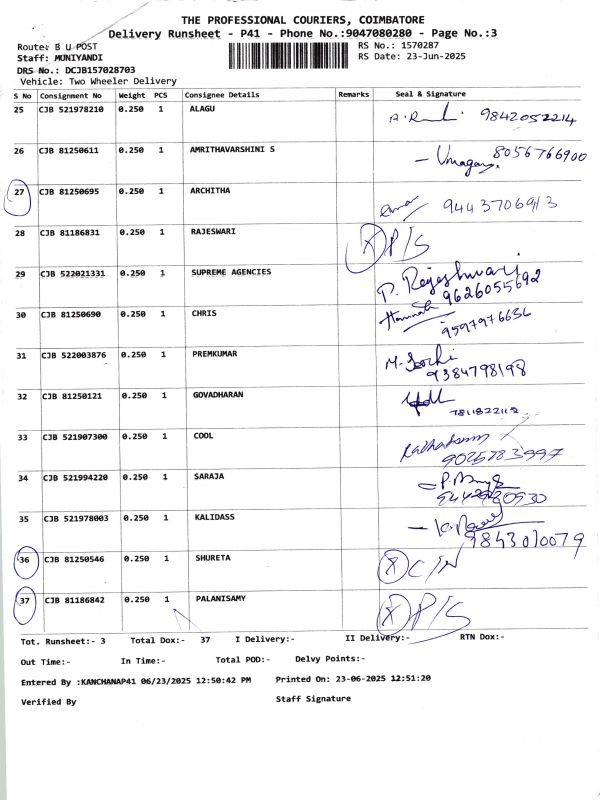 THE PROFESSIONAL COURIERS, COIMBATORE
Delivery Runsheet - P41 - Phone No.:9047080280 - Page No.:3
Route: B U POST
Staff: MUNIYANDI
DRS No.: DCJB157028703
Vehicle: Two Wheeler Delivery
RS No.: 1570287
RS Date: 23-Jun-2025
S No Consignment No Weight PCS Consignee Details Remarks Seal & Signature
25 CJB 521978210 0.250 1 ALAGU 9842052214
26 CJB 81250611 0.250 1 AMRITHAVARSHINI S 8056766900
27 CJB 81250695 0.250 1 ARCHITHA 9443706913
28 CJB 81186831 0.250 1 RAJESWARI X P/S
29 CJB 522021331 0.250 1 SUPREME AGENCIES P. Rajeshwari 9626055692
30 CJB 81250690 0.250 1 CHRIS 9597976636
31 CJB 522003876 0.250 1 PREMKUMAR 9384798198
32 CJB 81250121 0.250 1 GOVADHARAN
33 CJB 521907300 0.250 1 COOL 9025783997
34 CJB 521994220 0.250 1 SARAJA
35 CJB 521978003 0.250 1 KALIDASS 9843010079
36 CJB 81250546 0.250 1 SHURETA X C/N
37 CJB 81186842 0.250 1 PALANISAMY X P/S
Tot. Runsheet:- 3 Total Dox:- 37 I Delivery:- II Delivery:- RTN Dox:-
Out Time:- In Time:- Total POD:- Delvy Points:-
Entered By :KANCHANAP41 06/23/2025 12:50:42 PM Printed On: 23-06-2025 12:51:20
Verified By Staff Signature